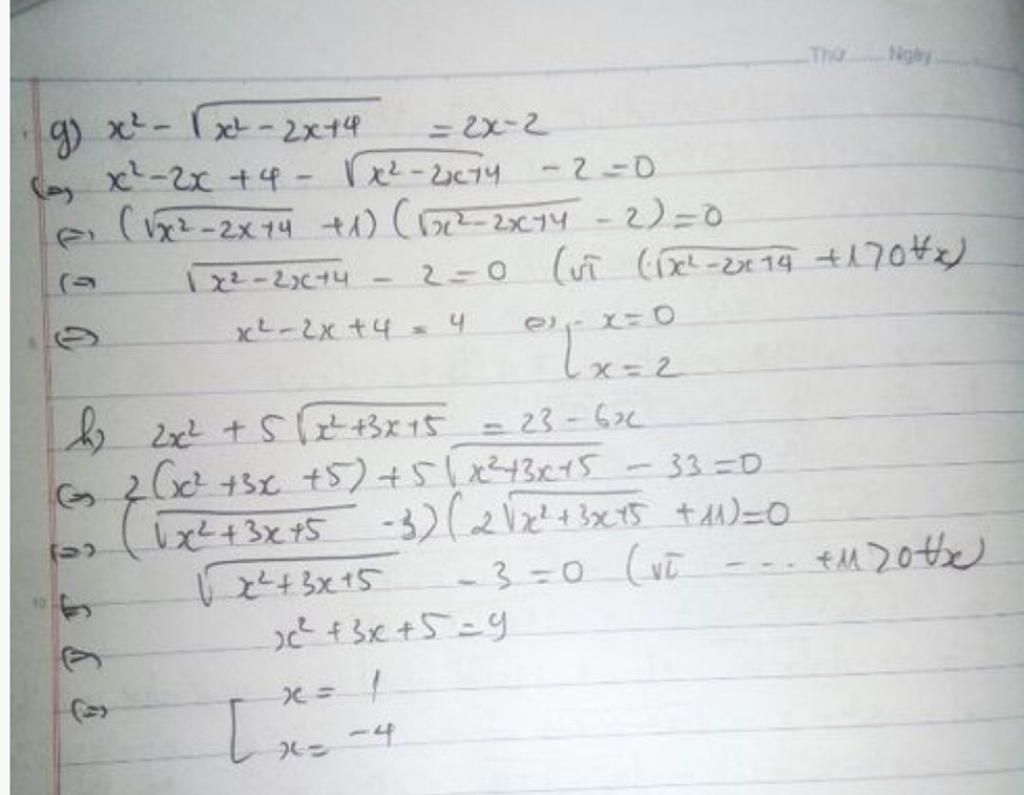 Thứ Ngày
g) x² - √(x² - 2x + 4) = 2x - 2
⇔ x² - 2x + 4 - √(x² - 2x + 4) - 2 = 0
⇔ (√(x² - 2x + 4) + 1)(√(x² - 2x + 4) - 2) = 0
⇔ √(x² - 2x + 4) - 2 = 0 (vì (√(x² - 2x + 4) + 1 > 0 ∀x)
⇔ x² - 2x + 4 = 4 ⇔ [ x = 0
x = 2
h) 2x² + 5√(x² + 3x + 5) = 23 - 6x
⇔ 2(x² + 3x + 5) + 5√(x² + 3x + 5) - 33 = 0
⇔ (√(x² + 3x + 5) - 3)(2√(x² + 3x + 5) + 11) = 0
⇔ √(x² + 3x + 5) - 3 = 0 (vì --.. + 11 > 0 ∀x)
⇔ x² + 3x + 5 = 9
⇔ [ x = 1
x = -4